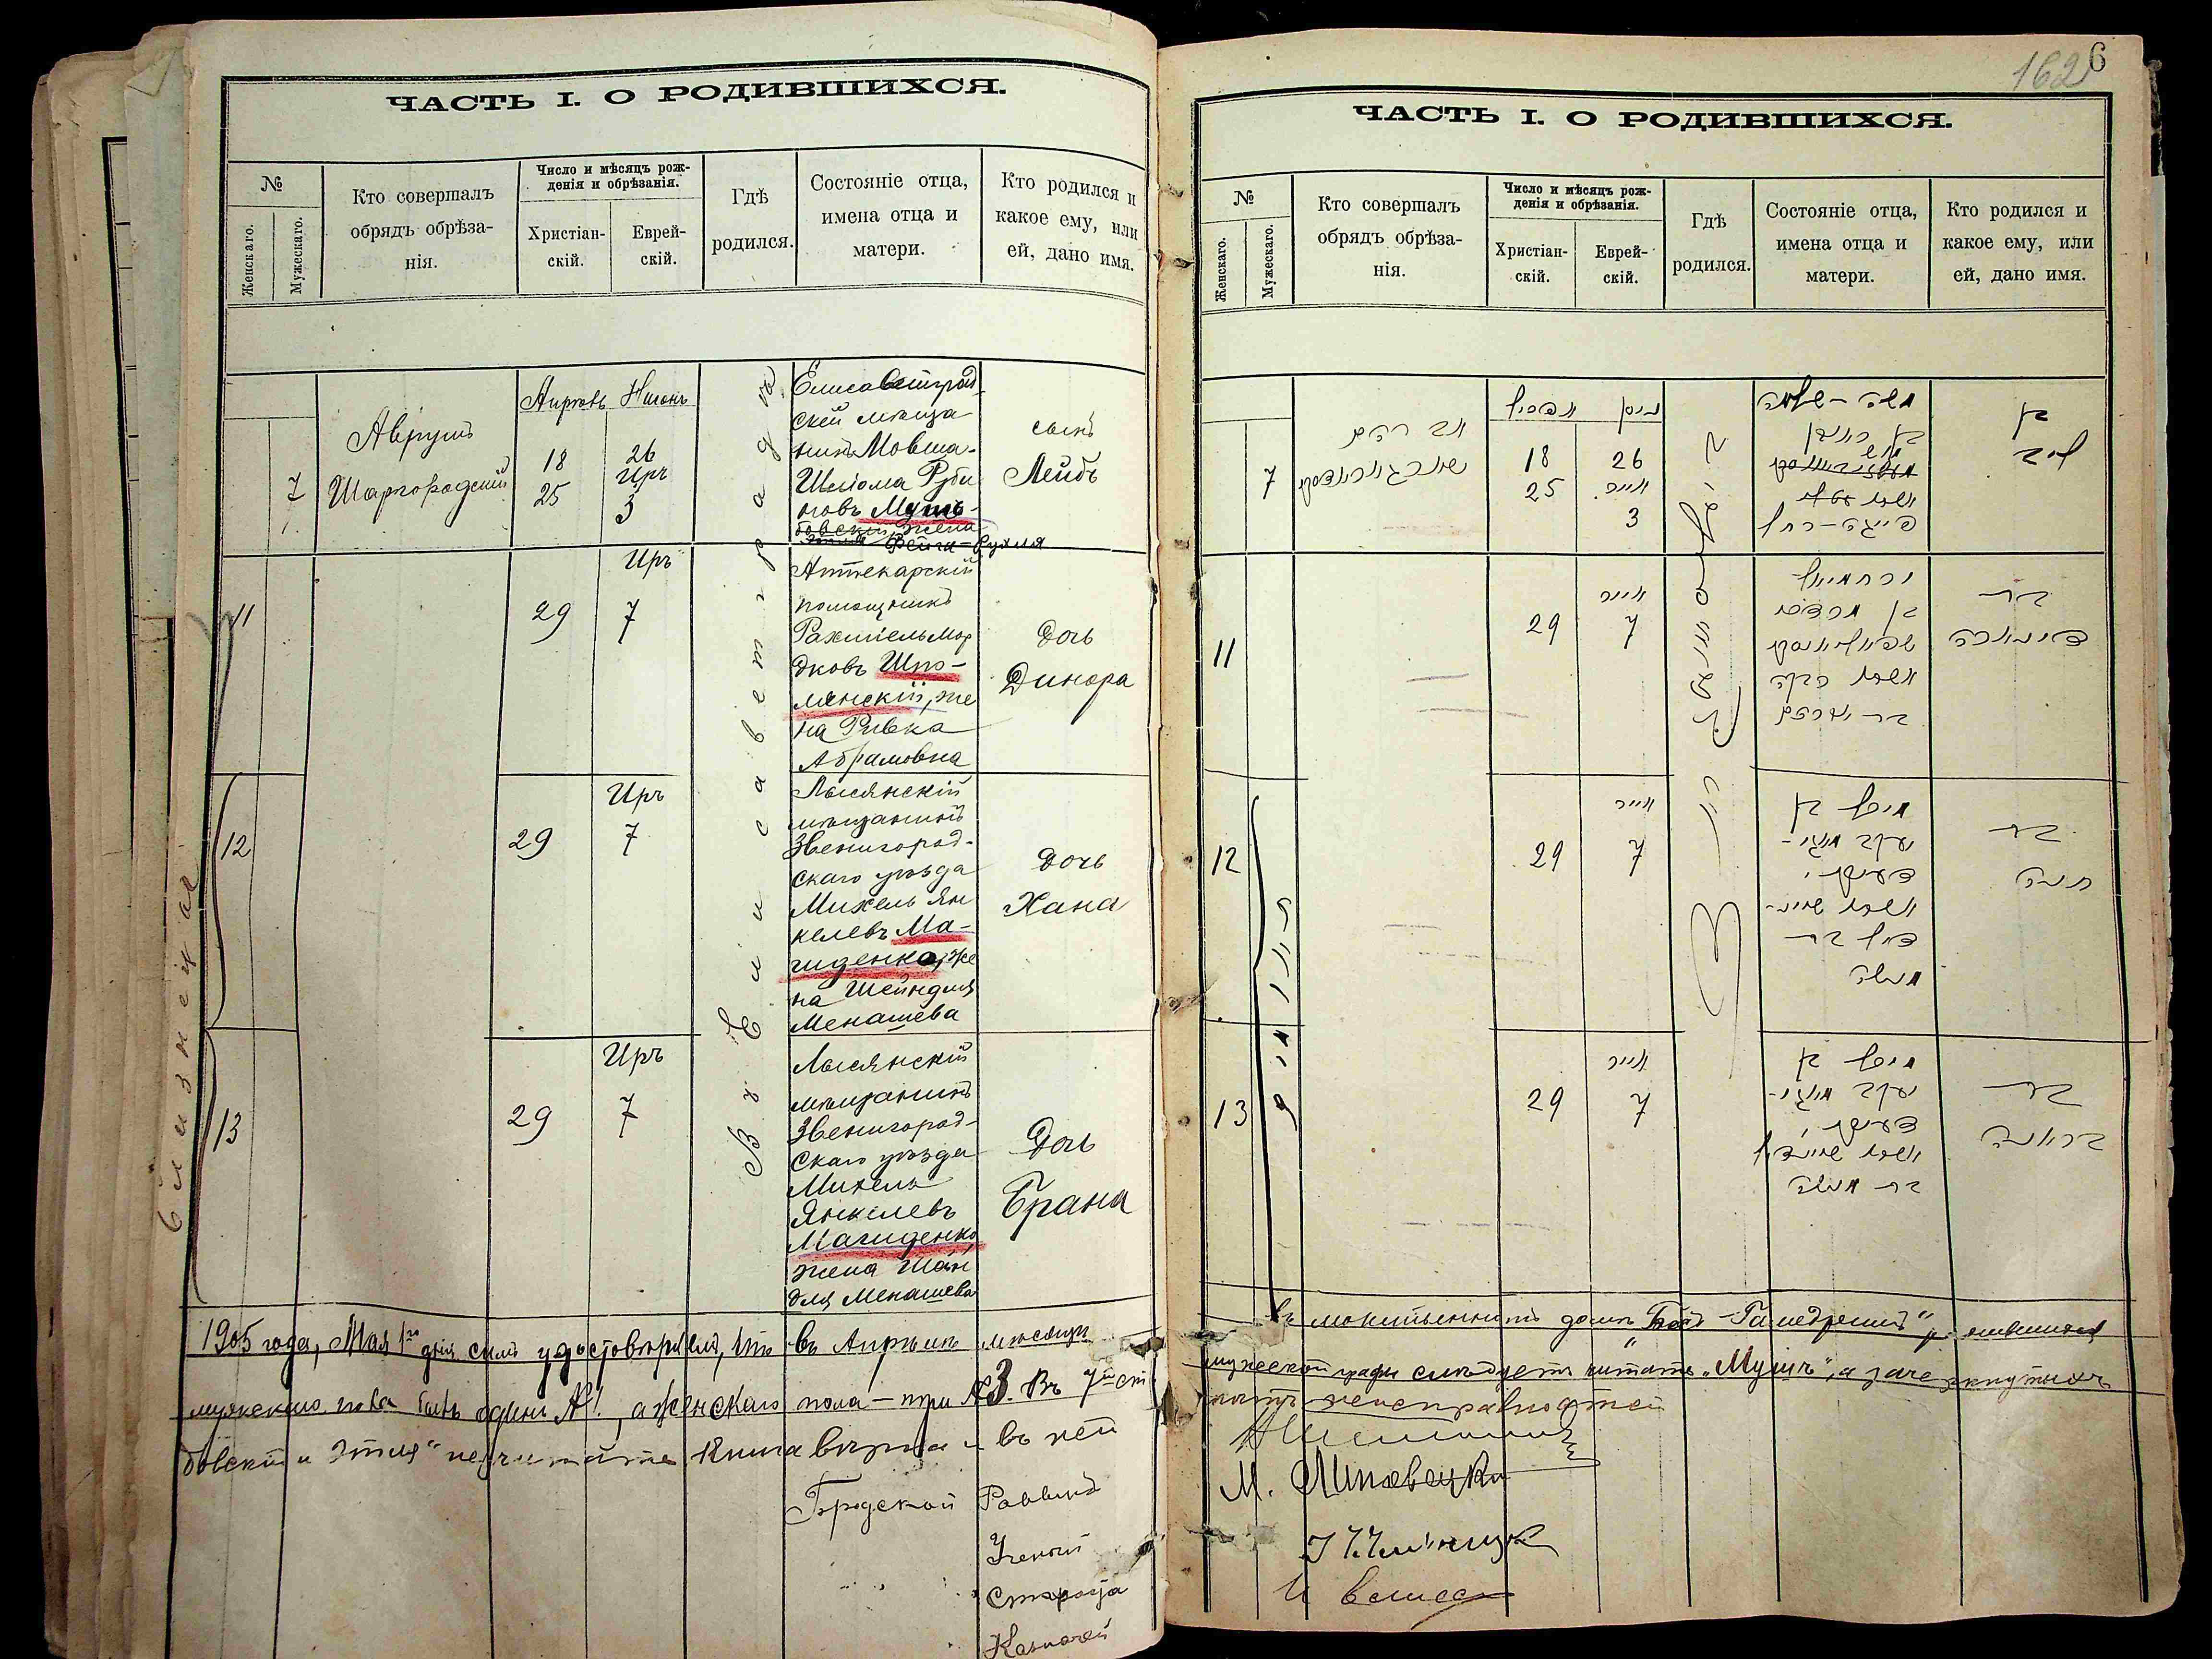 ЧАСТЬ I. О РОДИВШИХСЯ.
№
Женскаго.
Мужескаго.
Кто совершалъ
обрядъ обрѣза-
нія.
Число и мѣсяцъ рож-
денія и обрѣзанія.
Христіан-
скій.
Еврей-
скій.
Гдѣ
родился.
Состояніе отца,
имена отца и
матери.
Кто родился и
какое ему, или
ей, дано имя.
7
Аврумъ
Шаргородскій
Апрѣль
18
25
Нисонъ
26
Иръ
3
Въ Елисаветградѣ
Елисаветград-
скій мѣща
нинъ Мовша-
Шліома Руби
новъ Мушъ-
бовскій жена
Этля Фейга-Рухля
сынъ
Лейбъ
11
29
Иръ
7
Аптекарскій
помощникъ
Рахміель Мор
дковъ Шпо-
лянскій, же
на Ривка
Абрамовна
Дочь
Динора
близнецы
12
29
Иръ
7
Лысянскій
мѣщанинъ
Звенигород-
скаго уѣзда
Михель Ян
келевъ Ма-
гиденко, же
на Шейндля
Менашева
Дочь
Хана
13
29
Иръ
7
Лысянскій
мѣщанинъ
Звенигород-
скаго уѣзда
Михель
Янкелевъ
Магиденко
жена Шейн
для Менашева
Дочь
Брана
1905 года, Мая 1го дня симъ удостовѣряемъ, что въ Апрѣлѣ мѣсяцѣ
мужескаго пола былъ одинъ №1, а женскаго пола – три №3. Въ 7й ст
бовскій и Этля" не читайте Книга вѣрна и въ ней
Городской Раввинъ
Ученый
Староста
Казначей
162
6
ЧАСТЬ I. О РОДИВШИХСЯ.
№
Женскаго.
Мужескаго.
Кто совершалъ
обрядъ обрѣза-
нія.
Число и мѣсяцъ рож-
денія и обрѣзанія.
Христіан-
скій.
Еврей-
скій.
Гдѣ
родился.
Состояніе отца,
имена отца и
матери.
Кто родился и
какое ему, или
ей, дано имя.
7
18
25
ניסן
26
אייר
3
משה-שלמה
בן ראובן
פייגה-רחל
בן
ליב
11
29
אייר
7
ירחמיאל
בן מרדכי
אשתו רבקה
בת אברהם
בת
12
29
אייר
7
מיכל בן
יעקב
בת
חנה
13
29
אייר
7
מיכל בן
יעקב
אשתו שיינדיל
בת מנשה
בת
בראנה
въ молитвенномъ домѣ
мужеской графы слѣдуетъ читать „Мушъ", а зачеркнутыхъ
М. Липовецкій